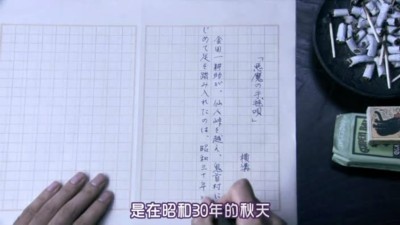 「悪魔の手毬唄」
横溝
金田一耕助が、仙人峠を越え、鬼首村に
じめて足を踏み入れたのは、昭和三十年
是在昭和30年的秋天